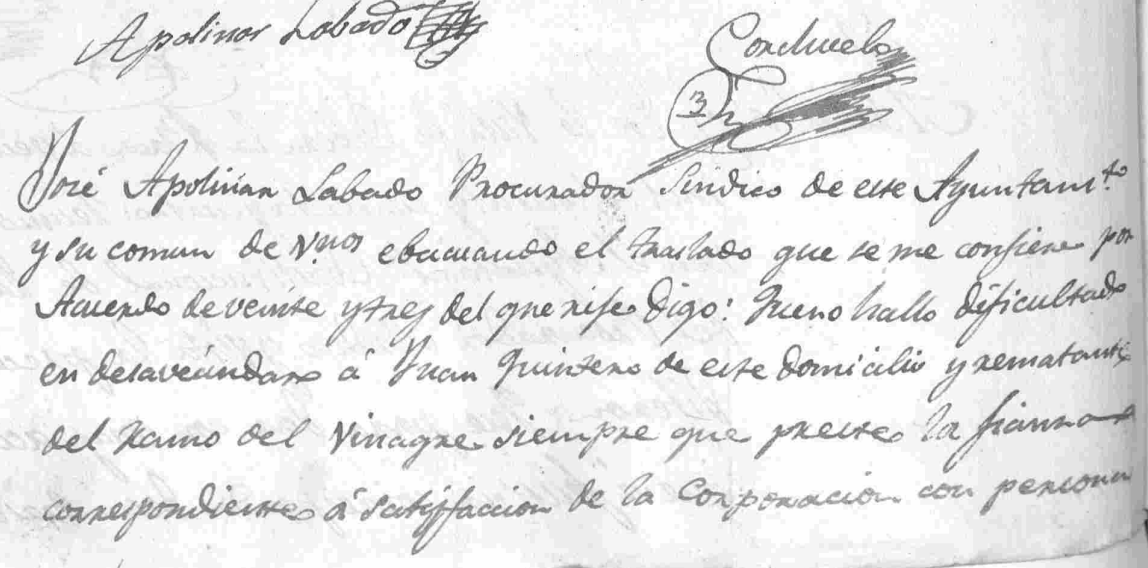 Apolinar Labado
Conchuelo
José Apolinar Labado Procurador Sindico de este Ayuntam.to
y su comun de V.nos ebacuando el traslado que se me confiere por
Acuerdo de veinte y tres del que rije Digo: Que no hallo dificultad
en desavecindar á Juan Quintero de este domicilio y rematante
del Ramo del Vinagre siempre que preste la fianza
correspondiente á satisfaccion de la Corporacion con persona